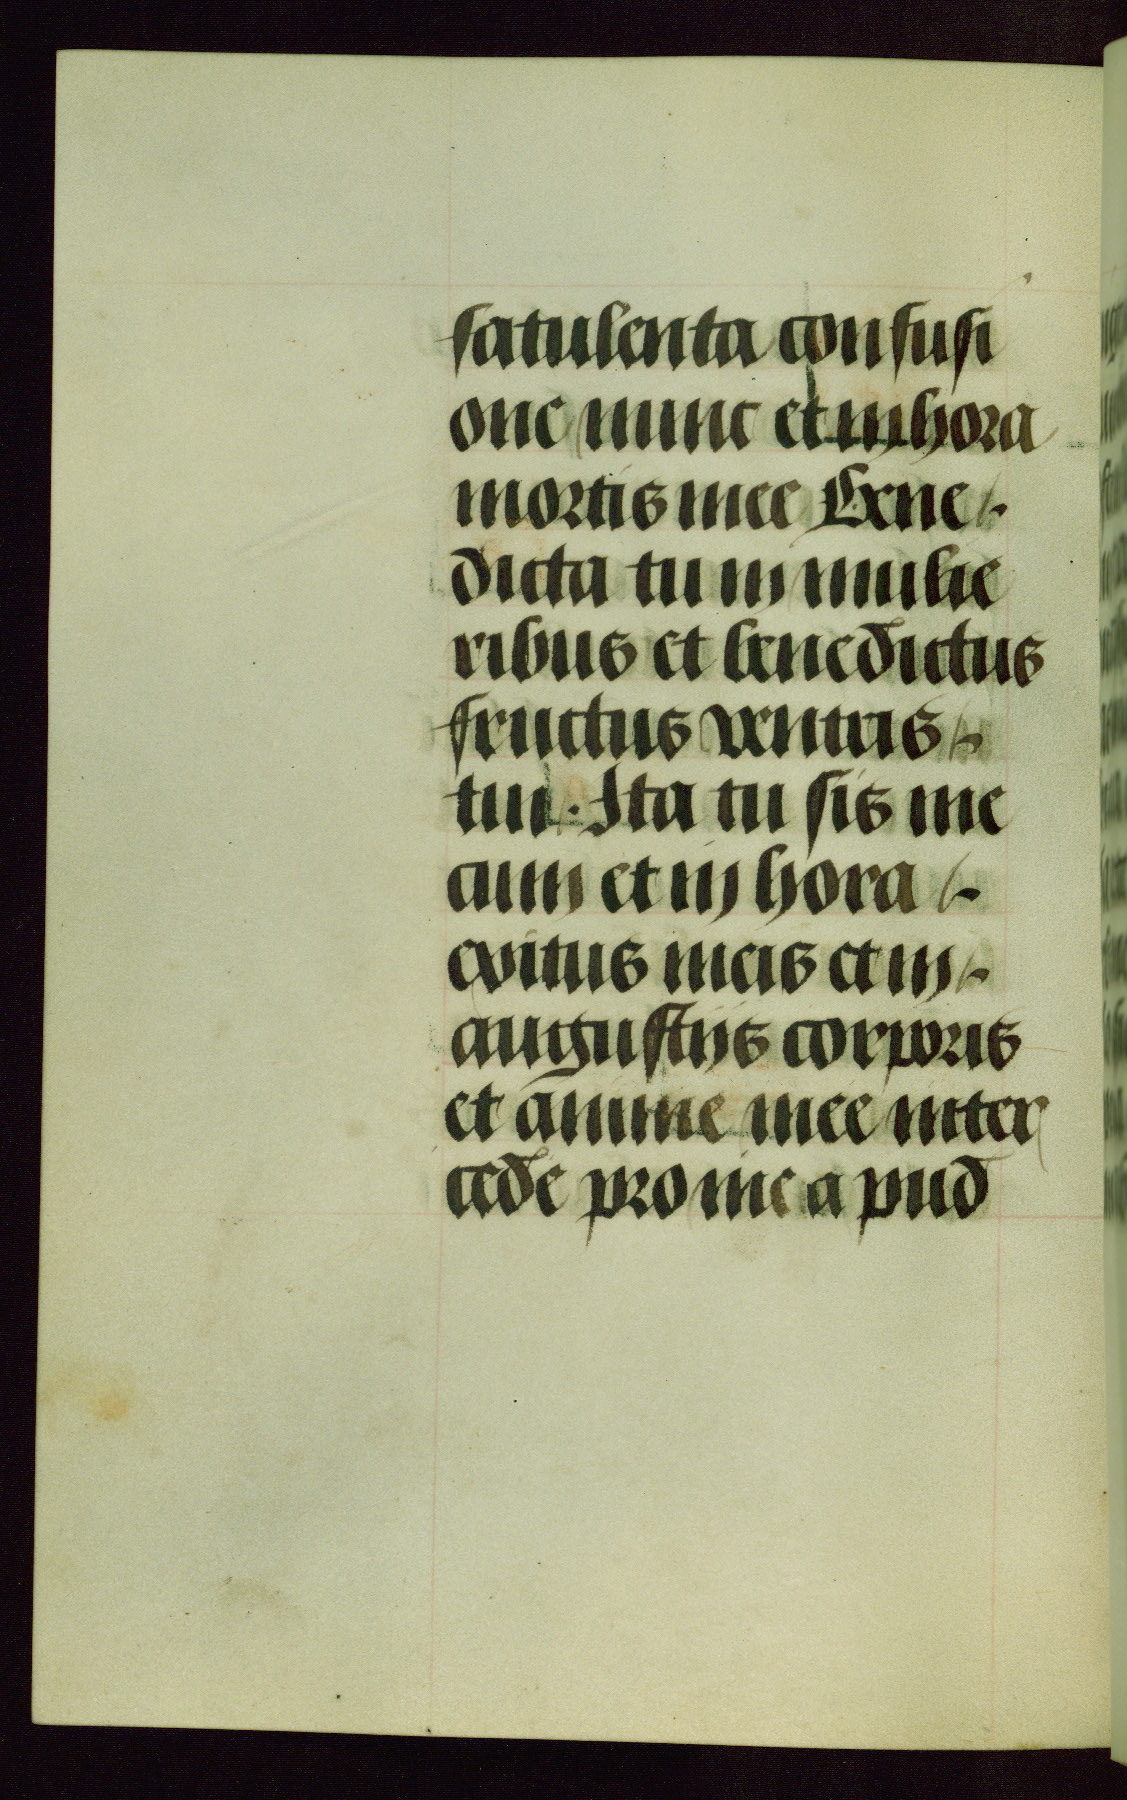 satulenta confusi
one nunc et in hora
mortis mee Bene-
dicta tu in mulie
ribus et benedictus
fructus ventris -
tui . Ita tu sis me
cum et in hora -
exitus meis et in -
angustijs corporis
et anime mee inter
cede pro me a pud